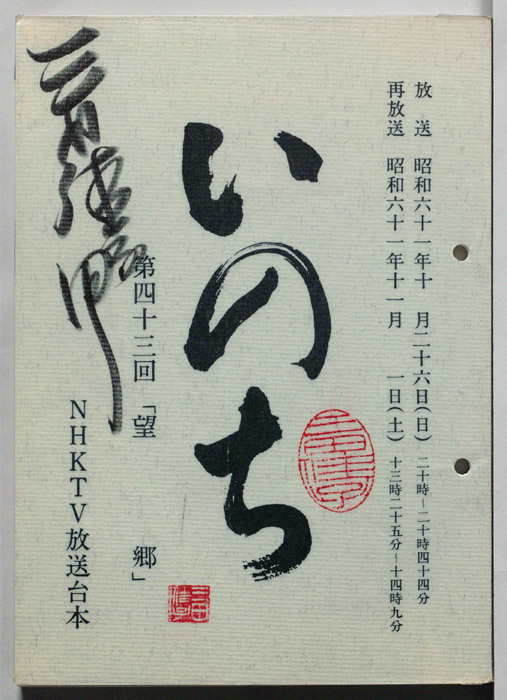 放　送　昭和六十一年十　月二十六日(日)　二十時～二十時四十四分
再放送　昭和六十一年十一月　　一日(土)　十三時二十五分～十四時九分
いのち
第四十三回「望　　　郷」
NHKTV放送台本